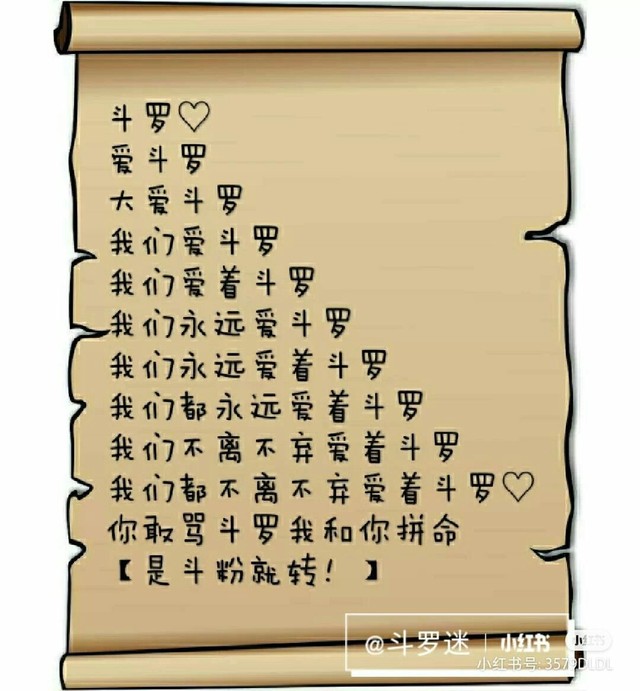 斗罗♡
爱斗罗
大爱斗罗
我们爱斗罗
我们爱着斗罗
我们永远爱斗罗
我们永远爱着斗罗
我们都永远爱着斗罗
我们不离不弃爱着斗罗
我们都不离不弃爱着斗罗♡
你敢骂斗罗我和你拼命
【是斗粉就转！】
@斗罗迷 | 小红书
小红书
小红书号: 3579DLDL